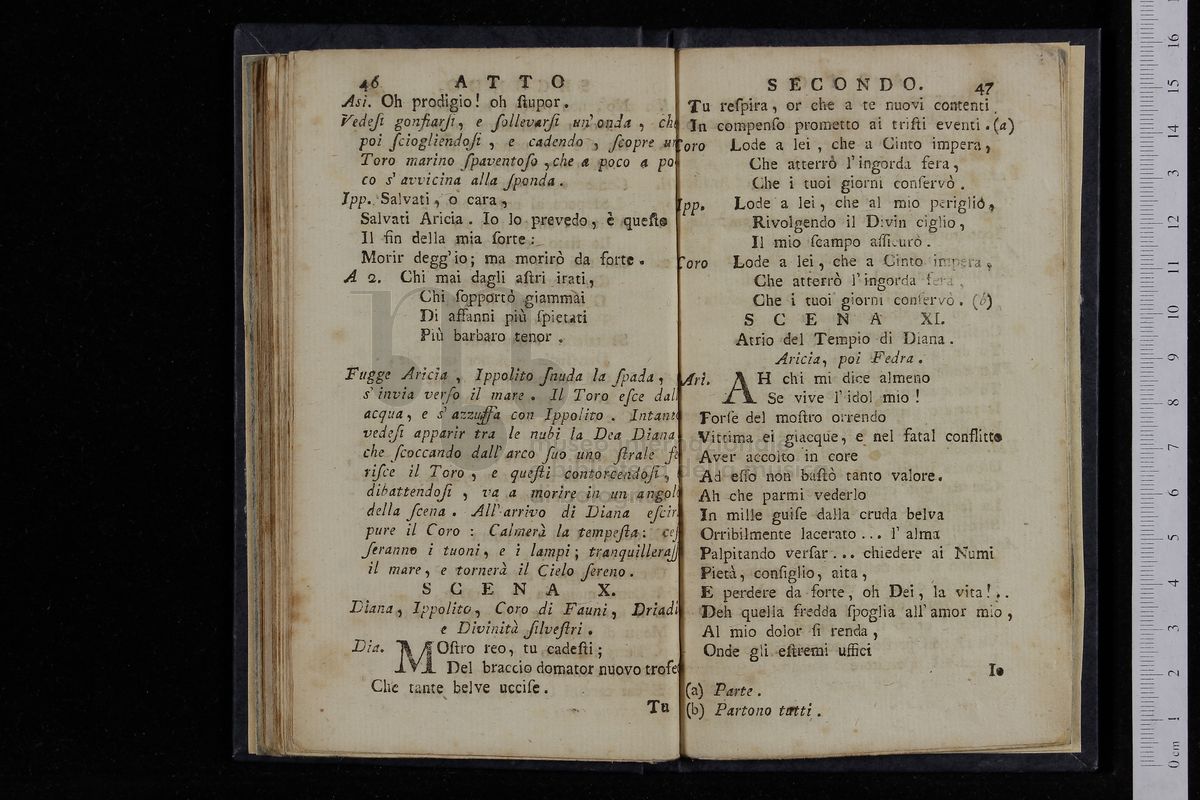 46 ATTO
Asi. Oh prodigio! oh ſtupor.
Vedeſi gonfiarſi, e ſollevarſi un' onda, che
poi ſciogliendoſi, e cadendo, ſcopre un
Toro marino ſpaventoſo, che a poco a po-
co s' avvicina alla ſponda.
Ipp. Salvati, o cara,
Salvati Aricia. Io lo prevedo, è queſto
Il fin della mia ſorte:
Morir degg'io; ma morirò da forte.
A 2. Chi mai dagli aſtri irati,
Chi ſopportò giammai
Di affanni più ſpietati
Più barbaro tenor.
Fugge Aricia, Ippolito ſnuda la ſpada,
s' invia verſo il mare. Il Toro eſce dall
acqua, e s' azzuffa con Ippolito. Intanto
vedeſi apparir tra le nubi la Dea Diana,
che ſcoccando dall' arco ſuo uno ſtrale fe
riſce il Toro, e queſti contorcendoſi,
dibattendoſi, va a morire in un angolo
della ſcena. All' arrivo di Diana eſcir
pure il Coro: Calmerà la tempeſta: ceſ
ſeranno i tuoni, e i lampi; tranquilleraſſ
il mare, e tornerà il Cielo ſereno.
SCENA X.
Diana, Ippolito, Coro di Fauni, Driadi
e Divinità ſilveſtri.
Dia. MOſtro reo, tu cadeſti;
Del braccio domator nuovo trofe
Che tante belve ucciſe.
Tu
SECONDO. 47
Tu reſpira, or che a te nuovi contenti
In compenſo prometto ai triſti eventi. (a)
Coro Lode a lei, che a Cinto impera,
Che atterrò l' ingorda fera,
Che i tuoi giorni conſervò.
Ipp. Lode a lei, che al mio periglio,
Rivolgendo il Divin ciglio,
Il mio ſcampo aſſicurò.
Coro Lode a lei, che a Cinto impera,
Che atterrò l' ingorda fera,
Che i tuoi giorni conſervò. (b)
SCENA XI.
Atrio del Tempio di Diana.
Aricia, poi Fedra.
Ari. AH chi mi dice almeno
Se vive l' idol mio!
Forſe del moſtro orrendo
Vittima ei giacque, e nel fatal conflitto
Aver accolto in core
Ad eſſo non baſtò tanto valore.
Ah che parmi vederlo
In mille guiſe dalla cruda belva
Orribilmente lacerato... l' alma
Palpitando verſar... chiedere ai Numi
Pietà, conſiglio, aita,
E perdere da forte, oh Dei, la vita!..
Deh quella fredda ſpoglia all' amor mio,
Al mio dolor ſi renda,
Onde gli eſtremi uffici
Io
(a) Parte.
(b) Partono tutti.
0 cm 1 2 3 4 5 6 7 8 9 10 11 12 13 14 15 16